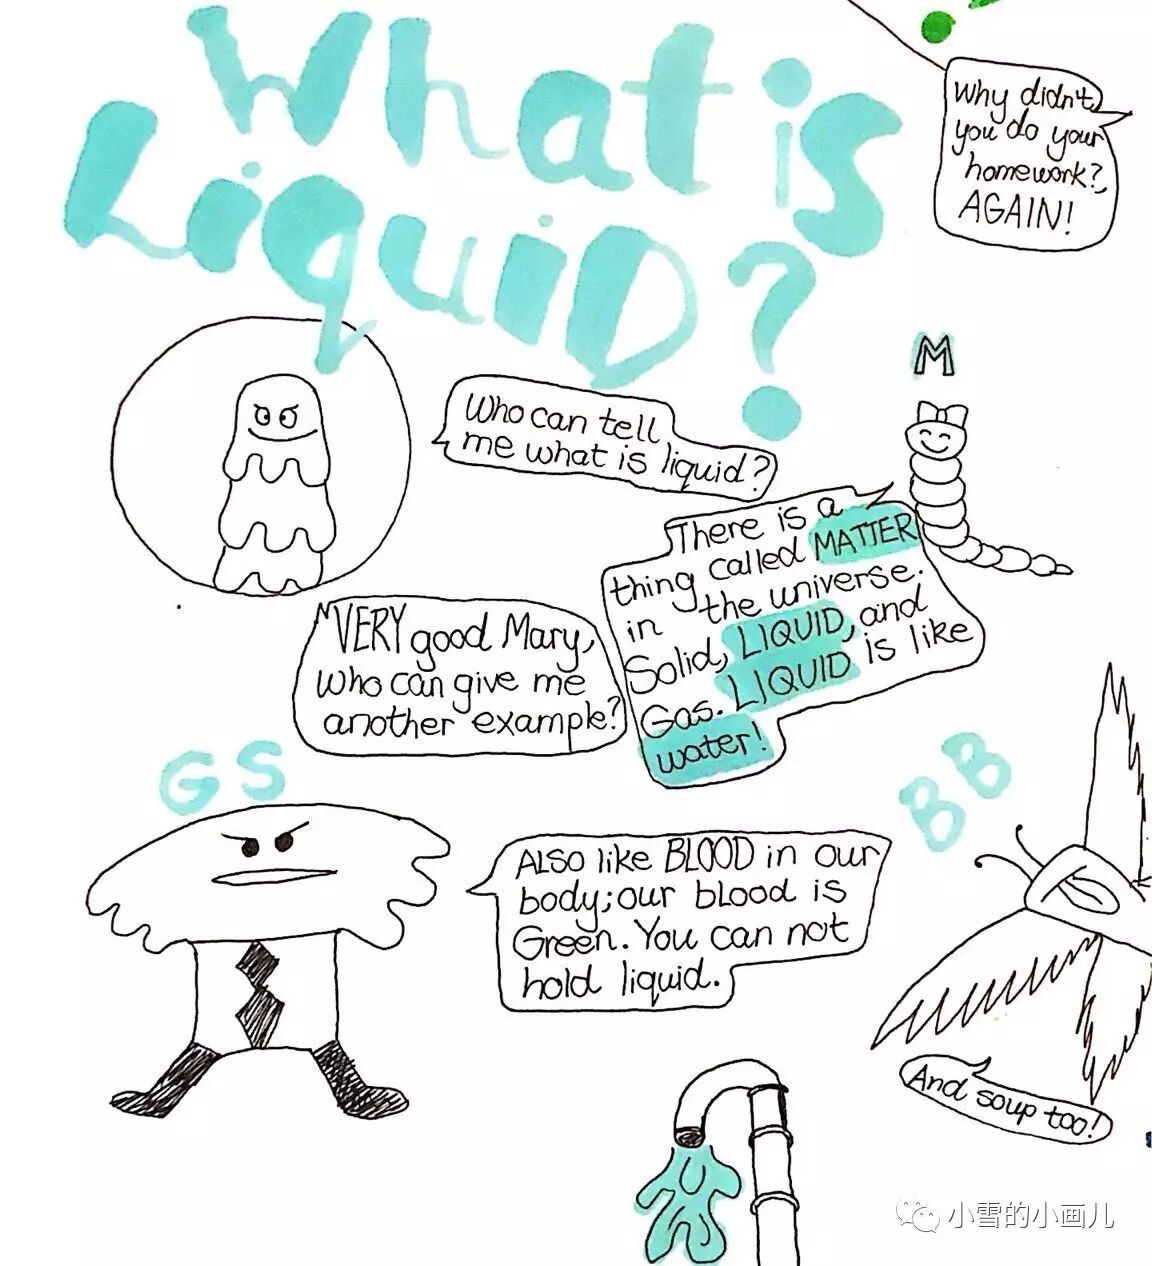 What is
Liquid?
Why didn't
you do your
homework?,
AGAIN!
M
Who can tell
me what is liquid?
There is a
thing called MATTER
in the universe.
Solid, LIQUID, and
Gas. LIQUID is like
water!
VERY good Mary,
who can give me
another example?
GS
BB
ALSO like BLOOD in our
body; our blood is
Green. You can not
hold liquid.
And soup too!
小雪的小画儿